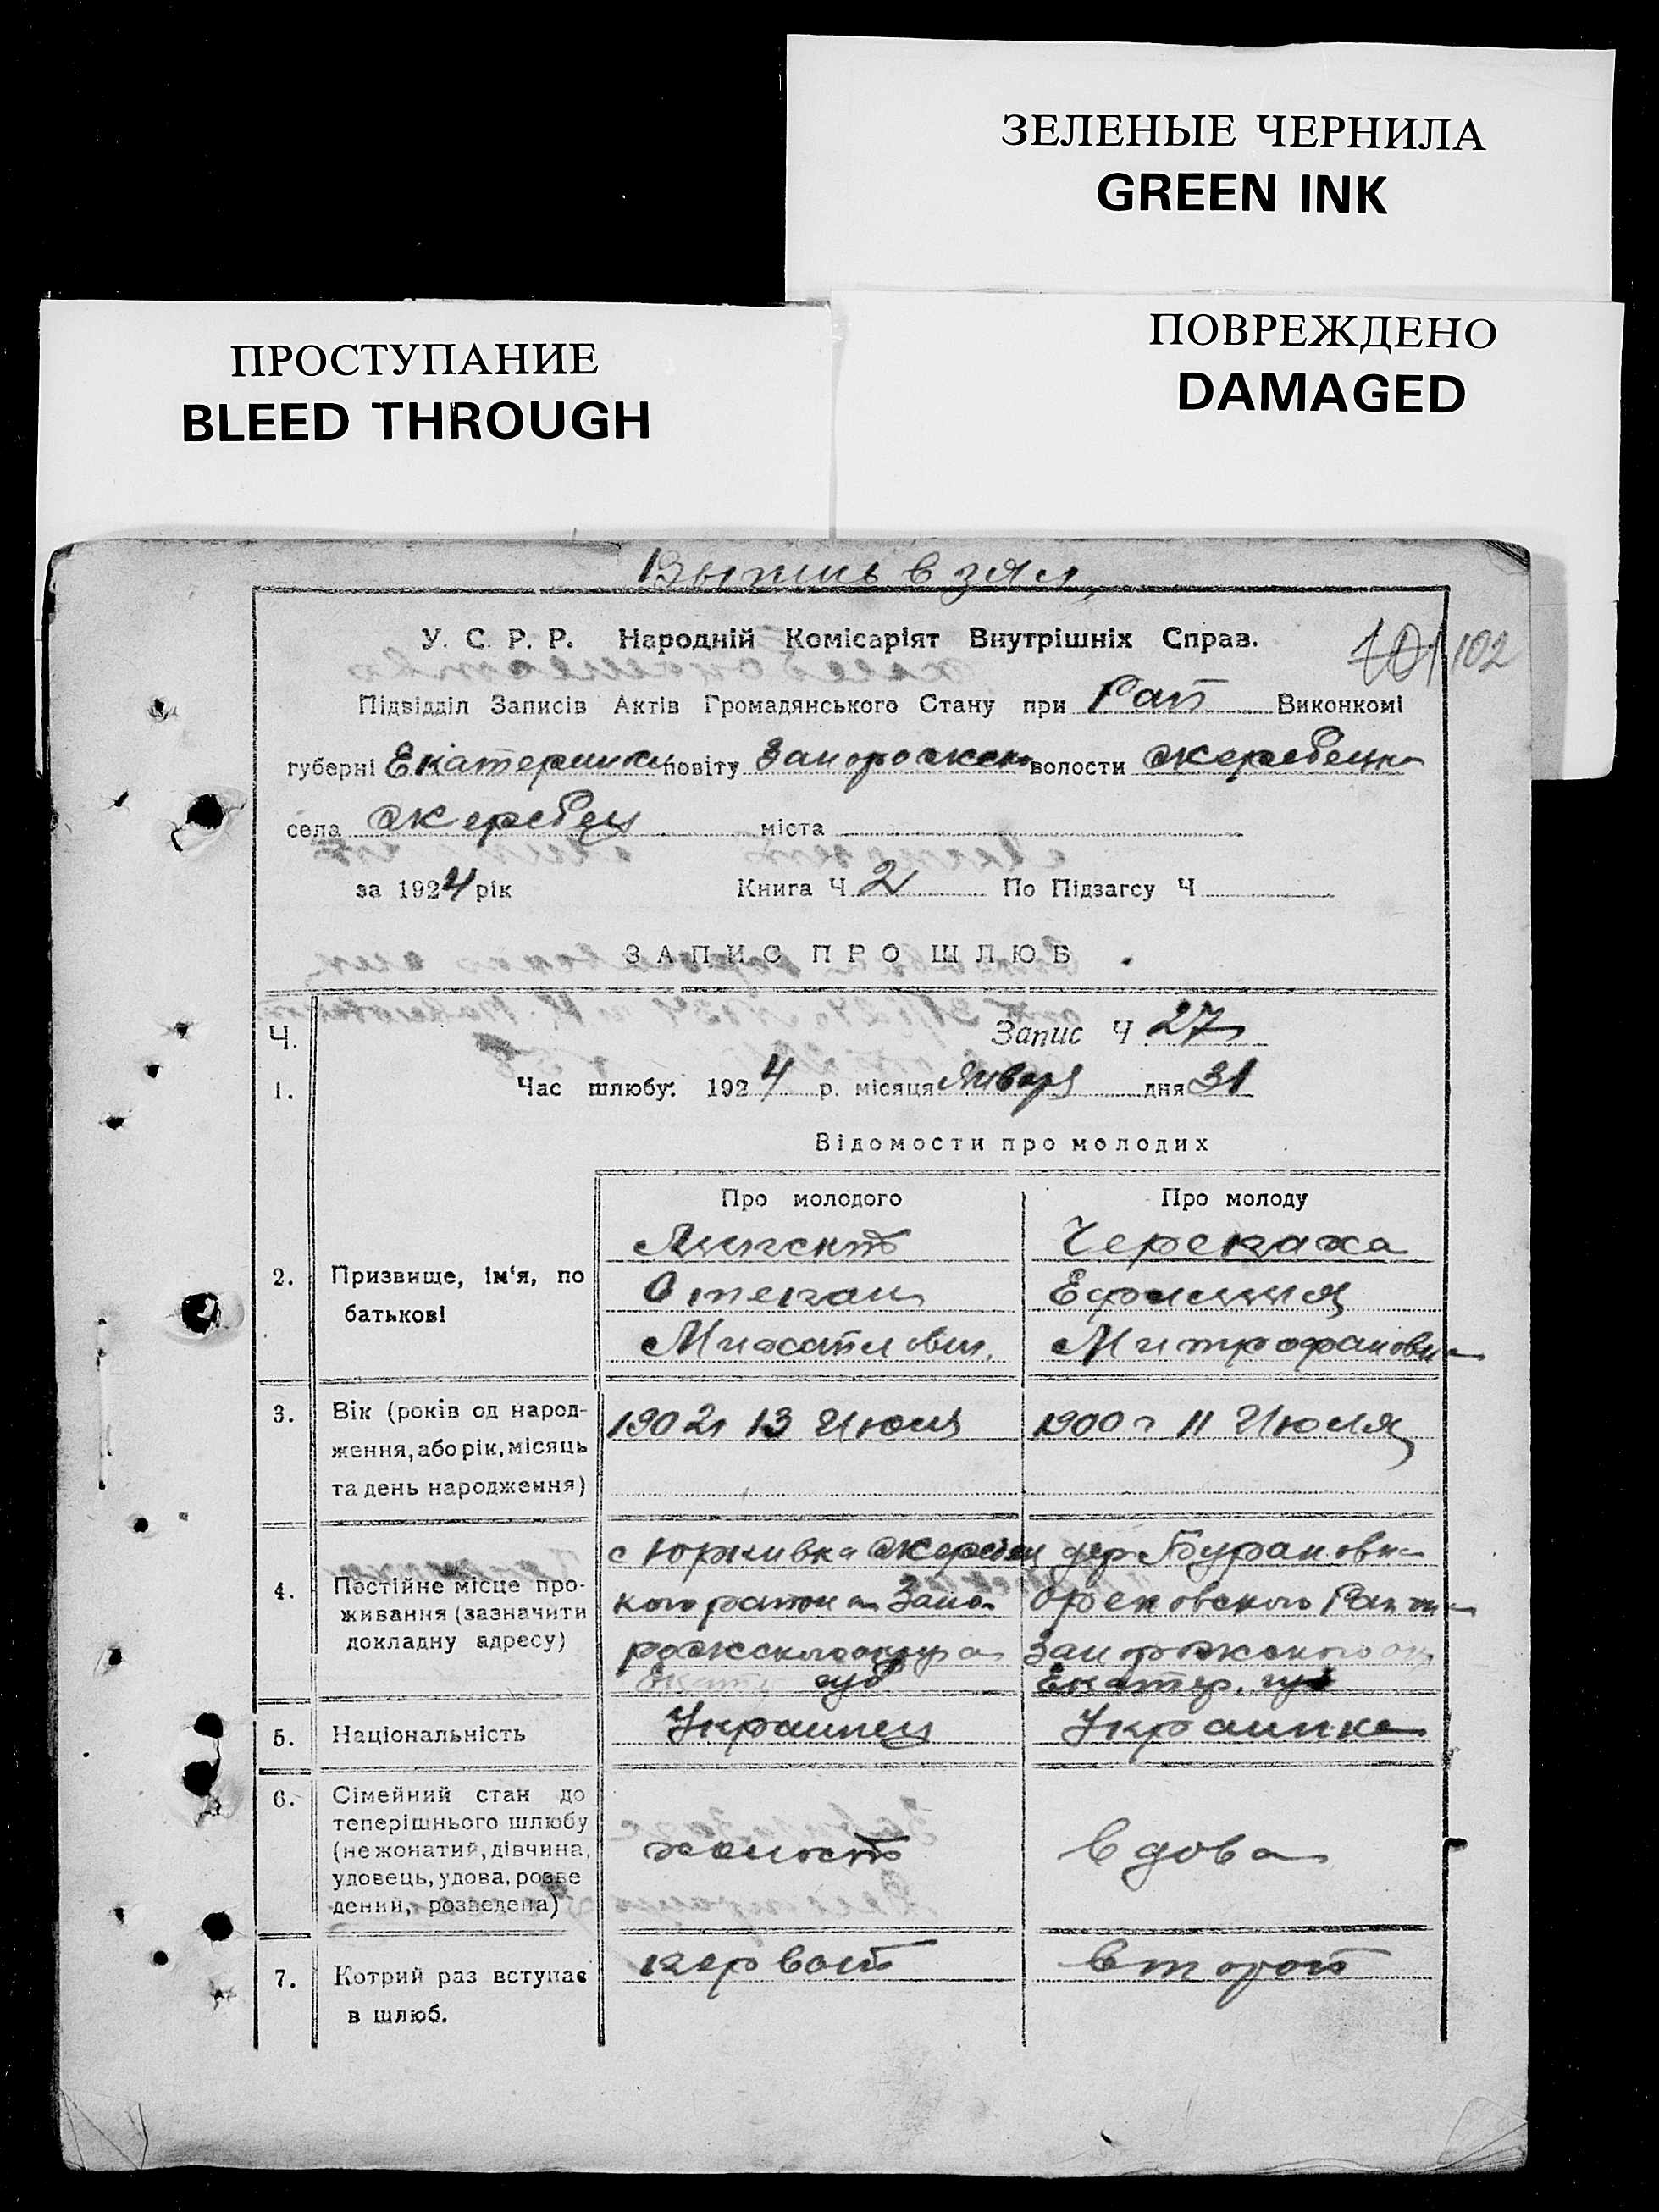 ЗЕЛЕНЫЕ ЧЕРНИЛА
GREEN INK
ПРОСТУПАНИЕ
BLEED THROUGH
ПОВРЕЖДЕНО
DAMAGED
Выпись взял
У. С. Р. Р. Народній Комісаріят Внутрішніх Справ.
101 102
Підвідділ Записів Актів Громадянського Стану при Рай Виконкомі
губерні Екатеринос повіту Запорожско волости Жеребецко
села Жеребец міста
за 1924 рік Книга Ч 2 По Підзагсу Ч
ЗАПИС ПРО ШЛЮБ
Ч. Запис Ч 27
1. Час шлюбу: 1924 р. місяця Января дня 31
Відомости про молодих
Про молодого Про молоду
Черепаха
2. Призвище, ім'я, по батькові
Степан Ефимия
Михайлович. Митрофановна
3. Вік (років од народ-
ження, або рік, місяць
та день народження)
1902г 13 Июля 1900 г 11 Июля
4. Постійне місце про-
живання (зазначити
докладну адресу)
с Юркивка Жеребец дер Бурановка
кого района Запо Ореховского Района
рожского округа Запорожского ок
Екатер губ Екатер. губ
5. Національність Украинец Украинка
6. Сімейний стан до
теперішнього шлюбу
(не жонатий, дівчина,
удовець, удова, розве
дений, розведена)
холост вдова
7. Котрий раз вступає
в шлюб.
первой второй